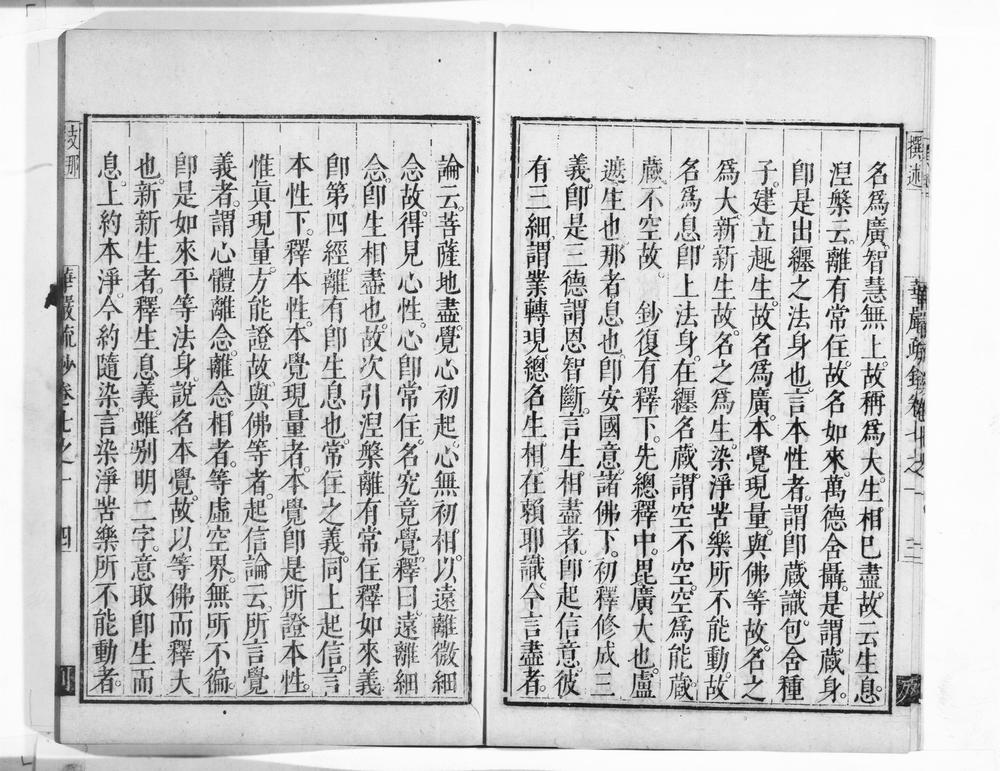 撰述
華嚴疏鈔卷七之一
三
名爲廣智慧無上故稱爲大生相巳盡故云生息。
涅槃云離有常住故名如來。萬德含攝是謂藏身。
卽是出纏之法身也。言本性者。謂卽藏識。包含種
子。建立趣生。故名爲廣。本覺現量與佛等故名之
爲大。新新生故。名之爲生。染淨苦樂所不能動。故
名爲息。卽上法身。在纏名藏。謂空不空。空爲能藏
藏不空故。 鈔復有釋下。先總釋中。毘廣大也。盧
遮生也。那者息也。卽安國意。諸佛下。初釋修成三
義。卽是三德。謂恩智斷。言生相盡者。卽起信意。彼
有三細。謂業轉現。總名生相。在賴耶識。今言盡者。
論云。菩薩地盡。覺心初起。心無初相。以遠離微細
念故。得見心性。心卽常住。名究竟覺。釋曰。遠離細
念。卽生相盡也。故次引涅槃離有常住。釋如來義
卽第四經。離有卽生息也。常住之義。同上起信。言
本性下。釋本性。本覺現量者。本覺卽是所證本性。
惟眞現量。方能證故。與佛等者。起信論云。所言覺
義者。謂心體離念。離念相者。等虛空界。無所不徧。
卽是如來平等法身。說名本覺。故以等佛而釋大
也。新新生者。釋生息義。雖別明二字。意取卽生而
息。上約本淨。今約隨染。言染淨苦樂所不能動者。
支那
華嚴疏鈔卷七之一
四